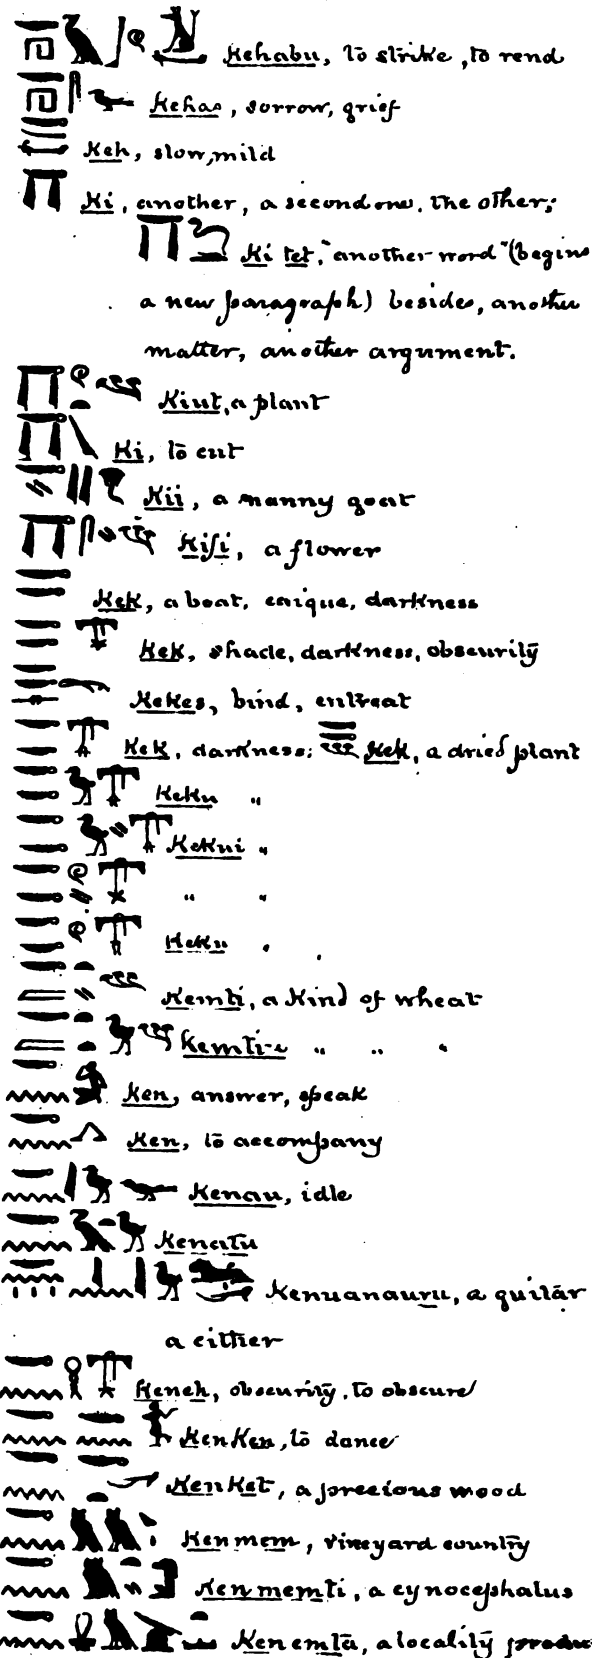 Kehabu, to strike, to rend
Kehas, sorrow, grief
Keh, slow, mild
Ki, another, a second one, the other;
Ki tet, "another word" (begins
a new paragraph) besides, another
matter, another argument.
Kiut, a plant
Ki, to cut
Kii, a nanny goat
Kisi, a flower
Kek, a boat, caique, darkness
Kek, shade, darkness, obscurity
Kekes, bind, entreat
Kek, darkness; Kek, a dried plant
Keku "
Kekui "
" "
Keku "
Kemti, a kind of wheat
Kemti-u " " "
Ken, answer, speak
Ken, to accompany
Kenau, idle
Kenatu
Kenuanauru, a guitar
a cither
Keneh, obscurity, to obscure
KenKen, to dance
KenKet, a precious wood
Kenmem, vineyard country
Kenmemti, a cynocephalus
Kenemta, a locality